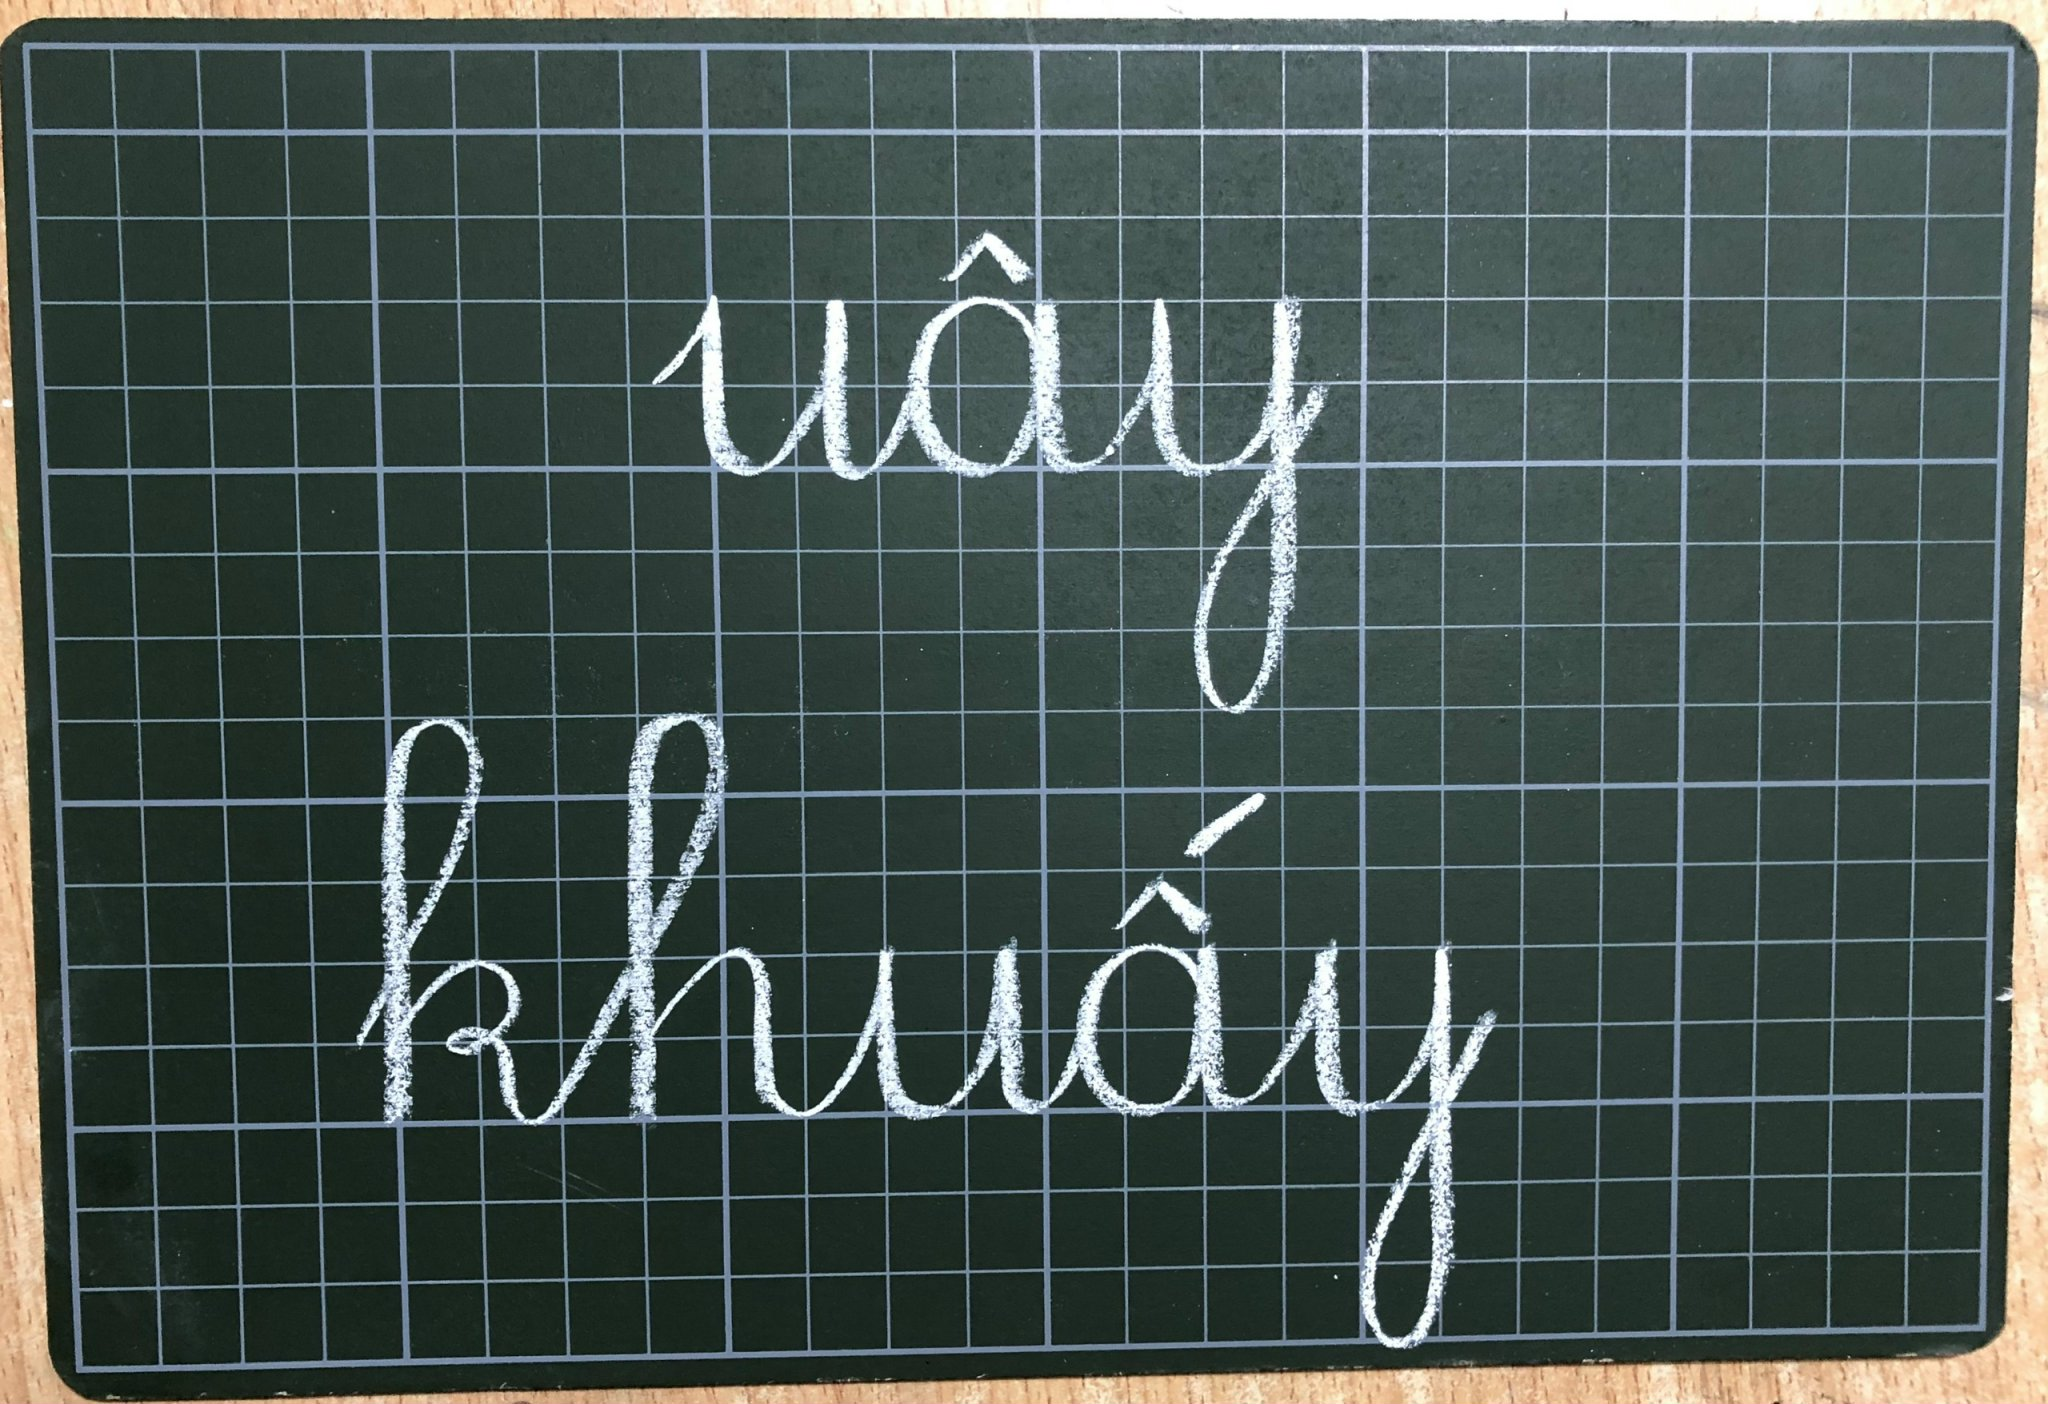 uây
khuấy